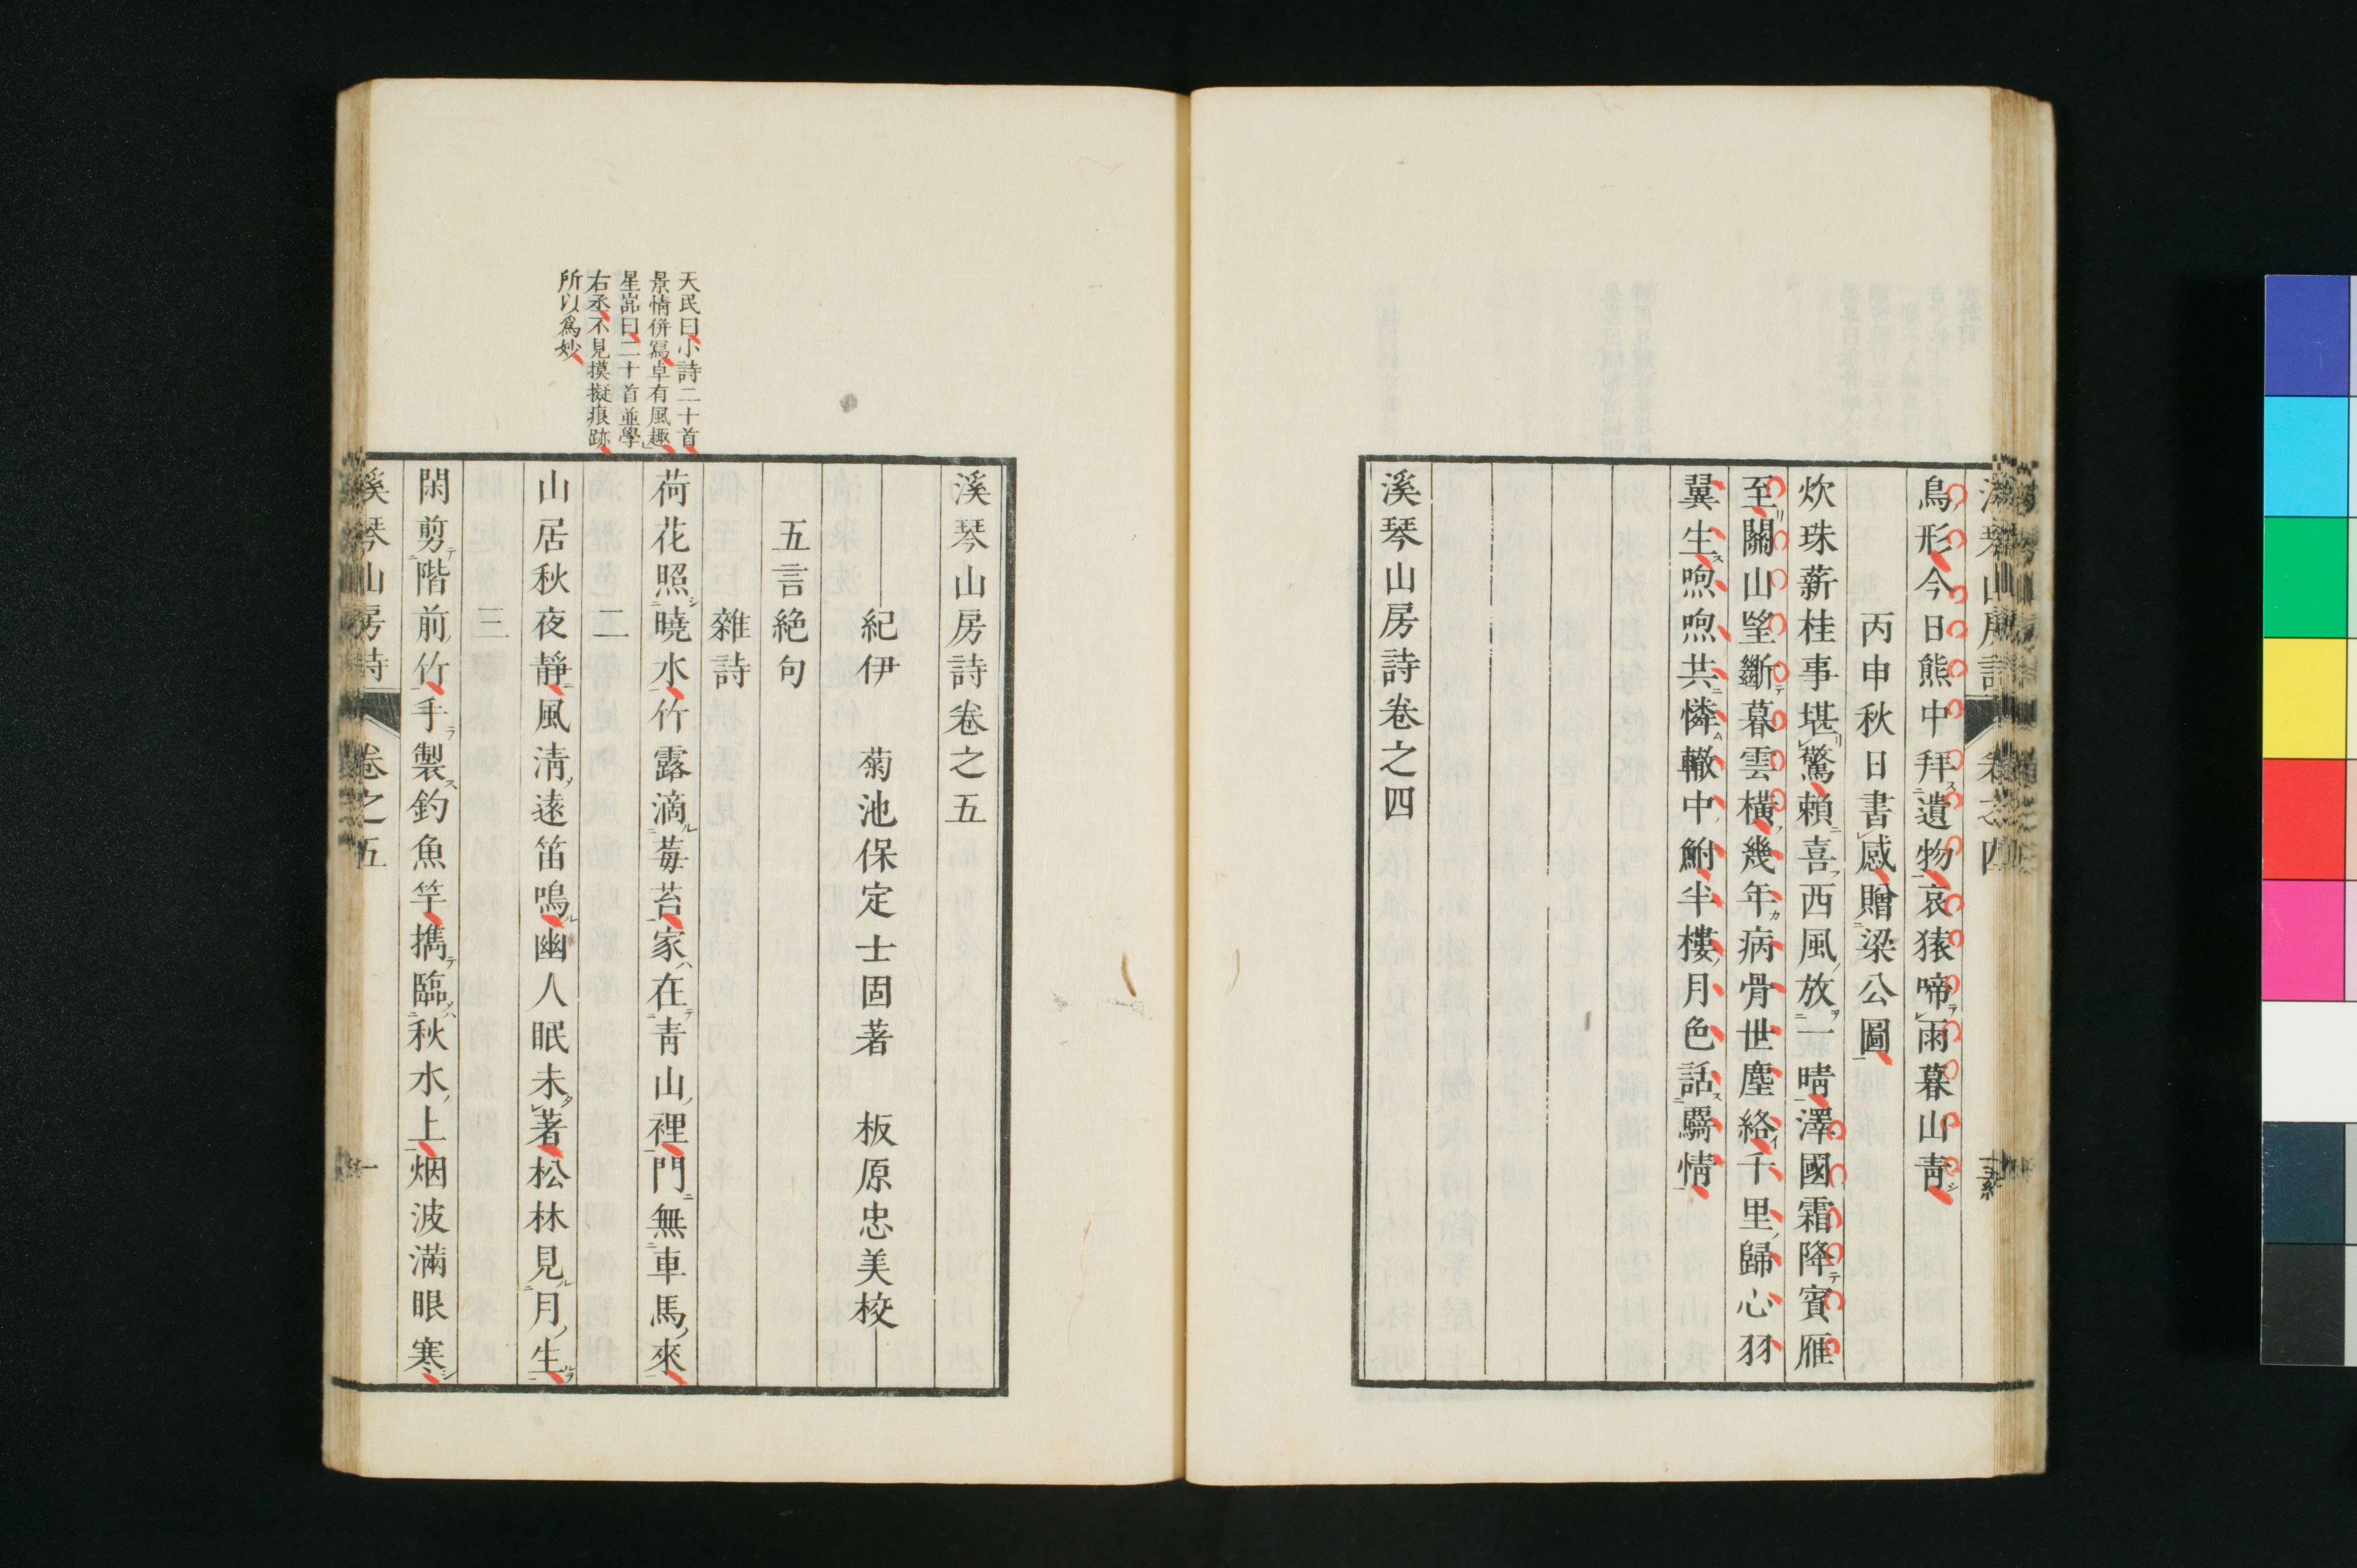 鳥形今日熊中拜遺物哀猿啼雨暮山靑
丙申秋日書感贈梁公圖
炊珠薪桂事堪驚賴喜西風放一晴澤國霜降賓雁
至關山望斷暮雲橫幾年病骨世塵絡千里歸心羽
翼生喣喣共憐轍中鮒半樓月色話覊情
溪琴山房詩卷之四
溪琴山房詩卷之五
紀伊 菊池保定士固著 板原忠美校
五言絶句
雜詩
天民曰小詩二十首
景情併寫卓有風趣
星嵓曰二十首並學
右丞不見摸擬痕跡
所以爲妙
荷花照曉水竹露滴莓苔家在靑山裡門無車馬來
二
山居秋夜靜風淸遠笛鳴幽人眠未著松林見月生
三
閑剪階前竹手製釣魚竿携臨秋水上烟波滿眼寒
溪琴山房詩 卷之五 一